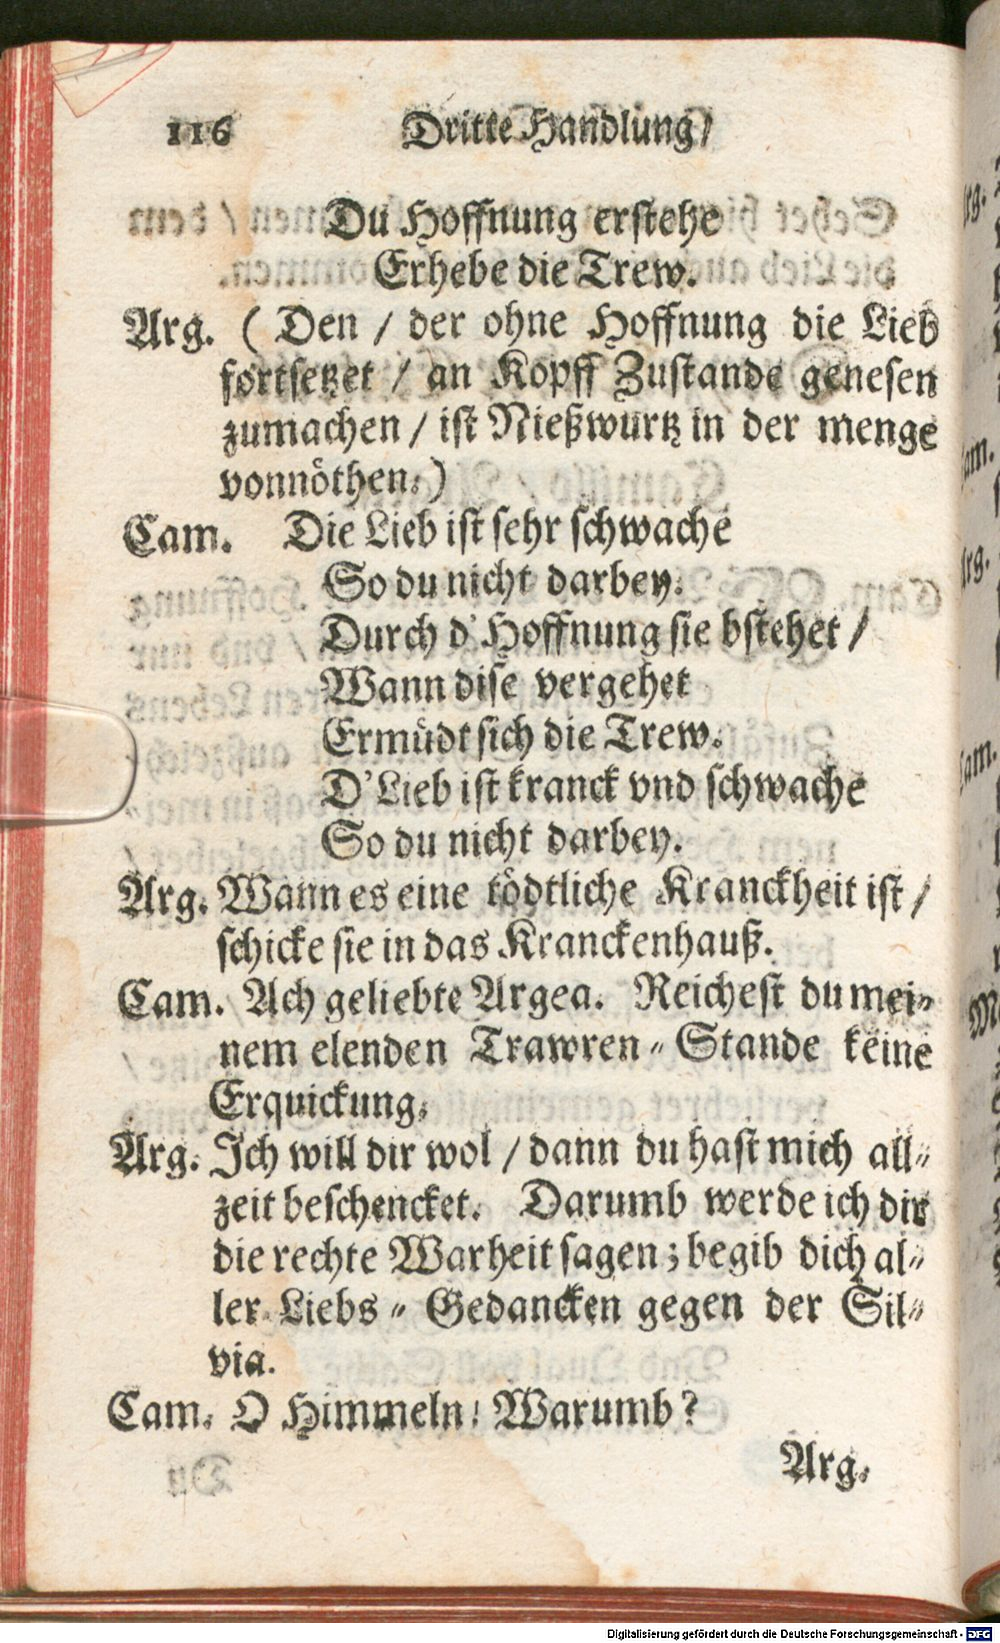 116 Dritte Handlung/
Du Hoffnung erstehe
Erhebe die Trew.
Arg. (Den / der ohne Hoffnung die Lieb
fortsetzet / an Kopff Zustande genesen
zumachen / ist Nießwurtz in der menge
vonnöthen.)
Cam. Die Lieb ist sehr schwache
So du nicht darbey.
Durch d' Hoffnung sie bstehet /
Wann dise vergehet
Ermüdt sich die Trew.
D'Lieb ist kranck vnd schwache
So du nicht darbey.
Arg. Wann es eine tödtliche Kranckheit ist /
schicke sie in das Kranckenhauß.
Cam. Ach geliebte Argea. Reichest du mei-
nem elenden Trawren-Stande keine
Erquickung.
Arg. Ich will dir wol / dann du hast mich all-
zeit beschencket. Darumb werde ich dir
die rechte Warheit sagen; begib dich al-
ler Liebs-Gedancken gegen der Sil-
via.
Cam. O Himmeln! Warumb?
Arg.
Digitalisierung gefördert durch die Deutsche Forschungsgemeinschaft - DFG